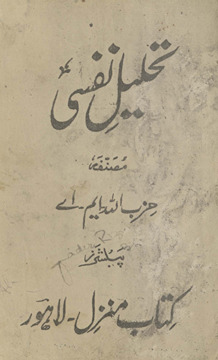 تحلیلِ نفسی
مصنفہ
حزب اللہ ایم۔ اے
پبلشرز
کتاب منزل۔ لاہور